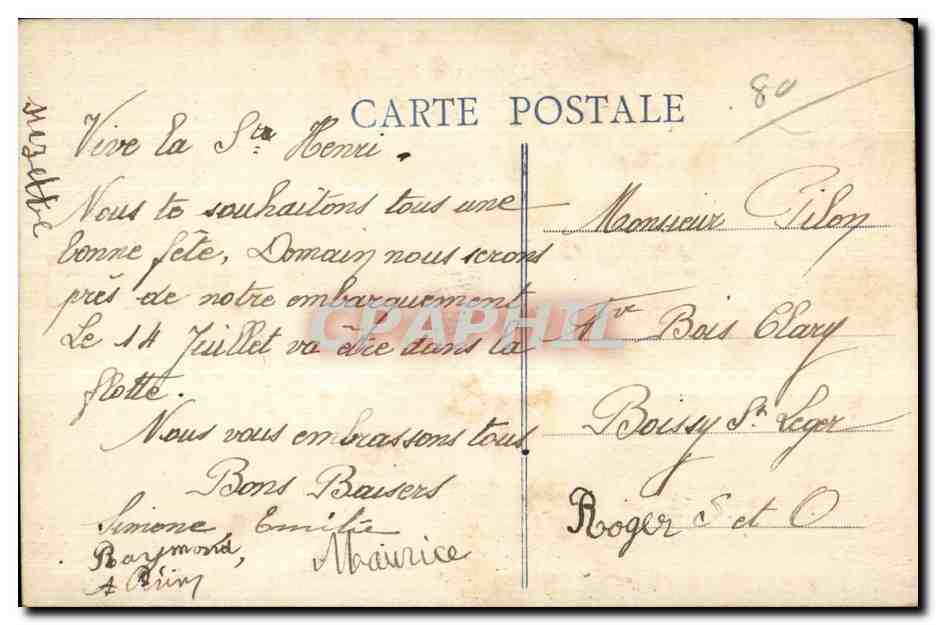 CARTE POSTALE
80
Suzette
Vive la Ste Henri.
Nous te souhaitons tous une
bonne fête, Domain nous serons
près de notre embarquement
Le 14 Juillet va être dans la
flotte.
Nous vous embrassons tous
Bons Baisers
Simone Emilie
Raymond, Maurice
Monsieur Pilon
Ave Bois Clary
Boissy St Leger
Roger S et O
CPAPHIL